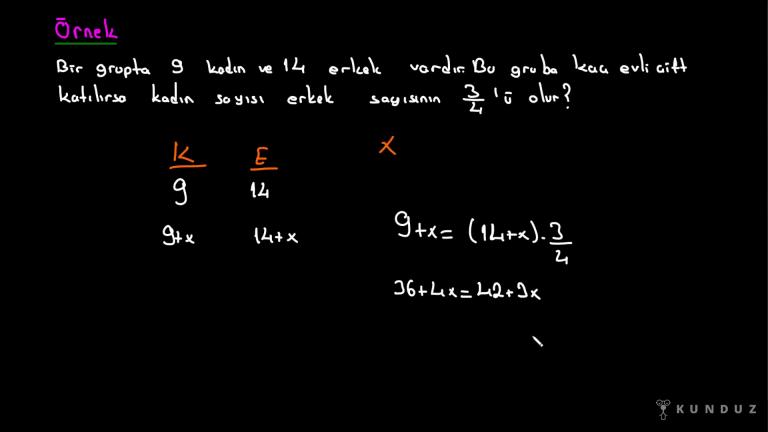 Örnek
Bir grupta 9 kadın ve 14 erkek vardır. Bu gruba kaç evli çift
katılırsa kadın sayısı erkek sayısının 3/4 'ü olur?
K E x
9 14
9+x 14+x 9+x = (14+x) . 3/4
36+4x = 42+3x
KUNDUZ